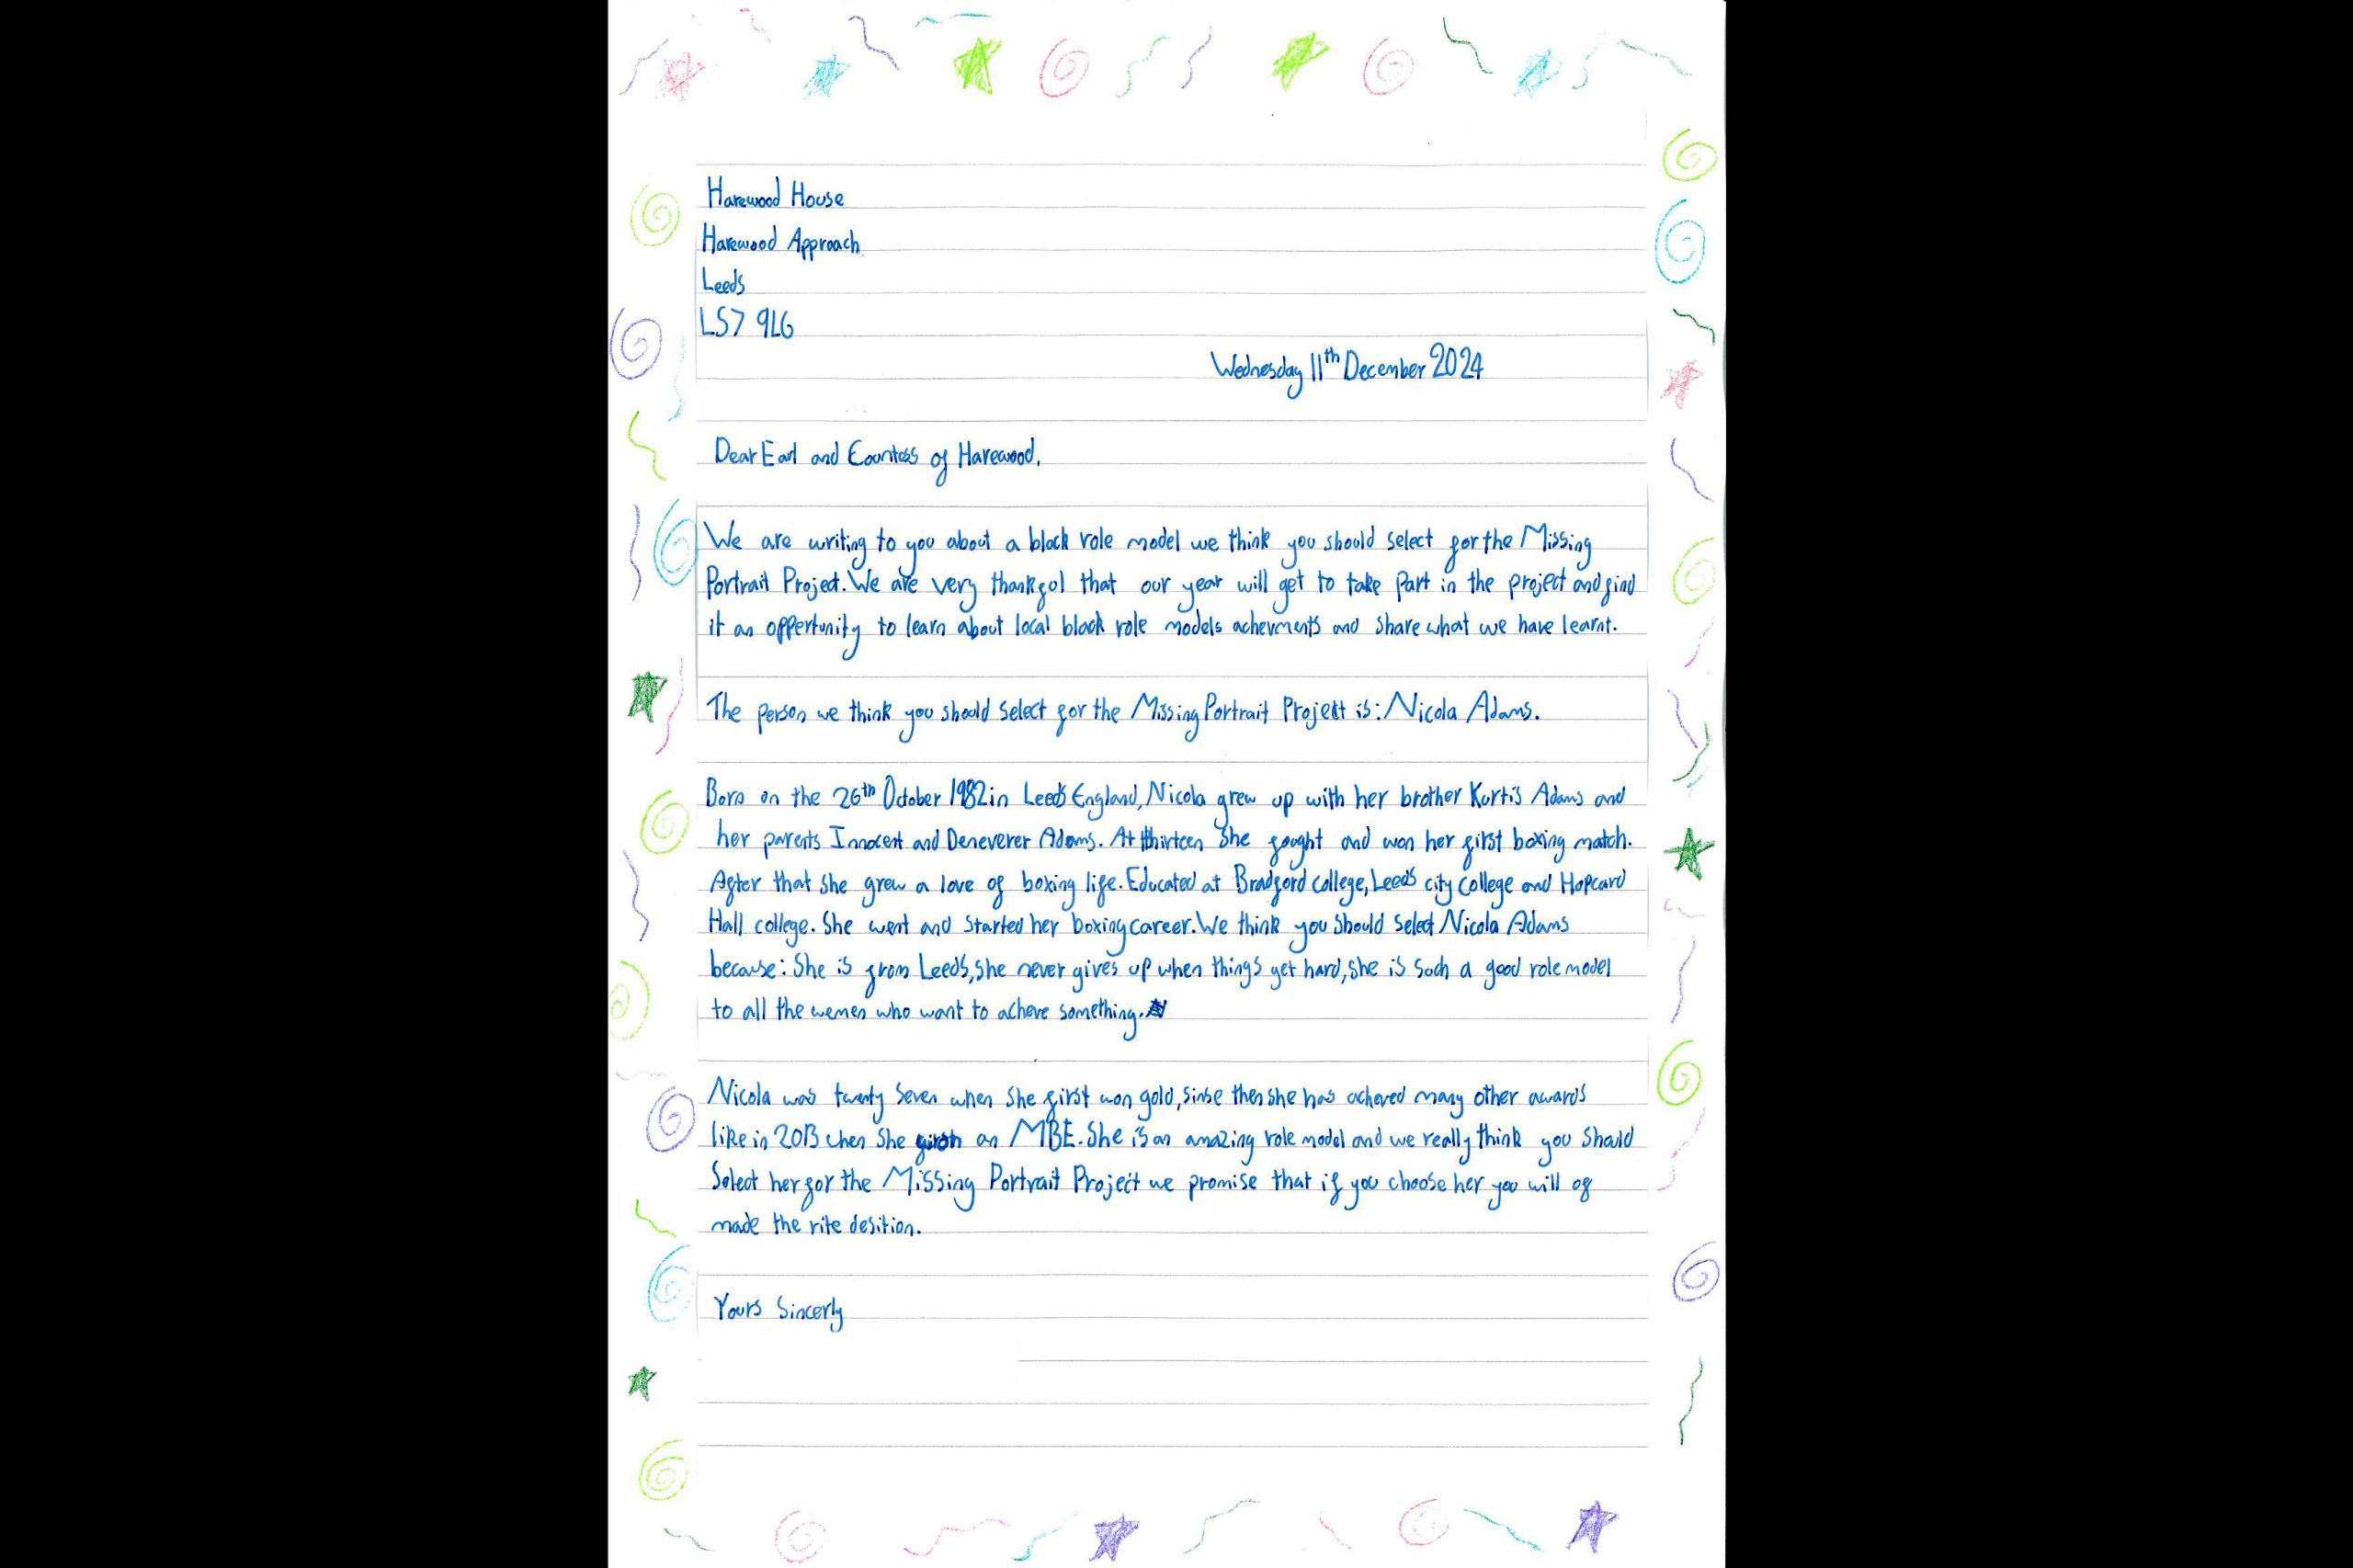 Harewood House
Harewood Approach
Leeds
LS7 9LG
Wednesday 11th December 2024
Dear Earl and Countess of Harewood,
We are writing to you about a black role model we think you should select for the Missing
Portrait Project. We are very thankful that our year will get to take part in the project and find
it an oppertunity to learn about local black role models achevments and share what we have learnt.
The person we think you should select for the Missing Portrait Project is: Nicola Adams.
Born on the 26th October 1982 in Leeds England, Nicola grew up with her brother Kurtis Adams and
her parents Innocent and Deneverer Adams. At thirteen she fought and won her first boxing match.
After that she grew a love of boxing life. Educated at Bradford college, Leeds city college and Hopcard
Hall college. She went and started her boxing career. We think you should select Nicola Adams
because: She is from Leeds, she never gives up when things get hard, she is such a good role model
to all the wemen who want to acheve something.
Nicola was twenty seven when she first won gold, sinse then she has acheved many other awards
like in 2013 when she an MBE. She is an amazing role model and we really think you should
Select her for the Missing Portrait Project we promise that if you choose her you will of
made the rite desition.
Yours Sincerly